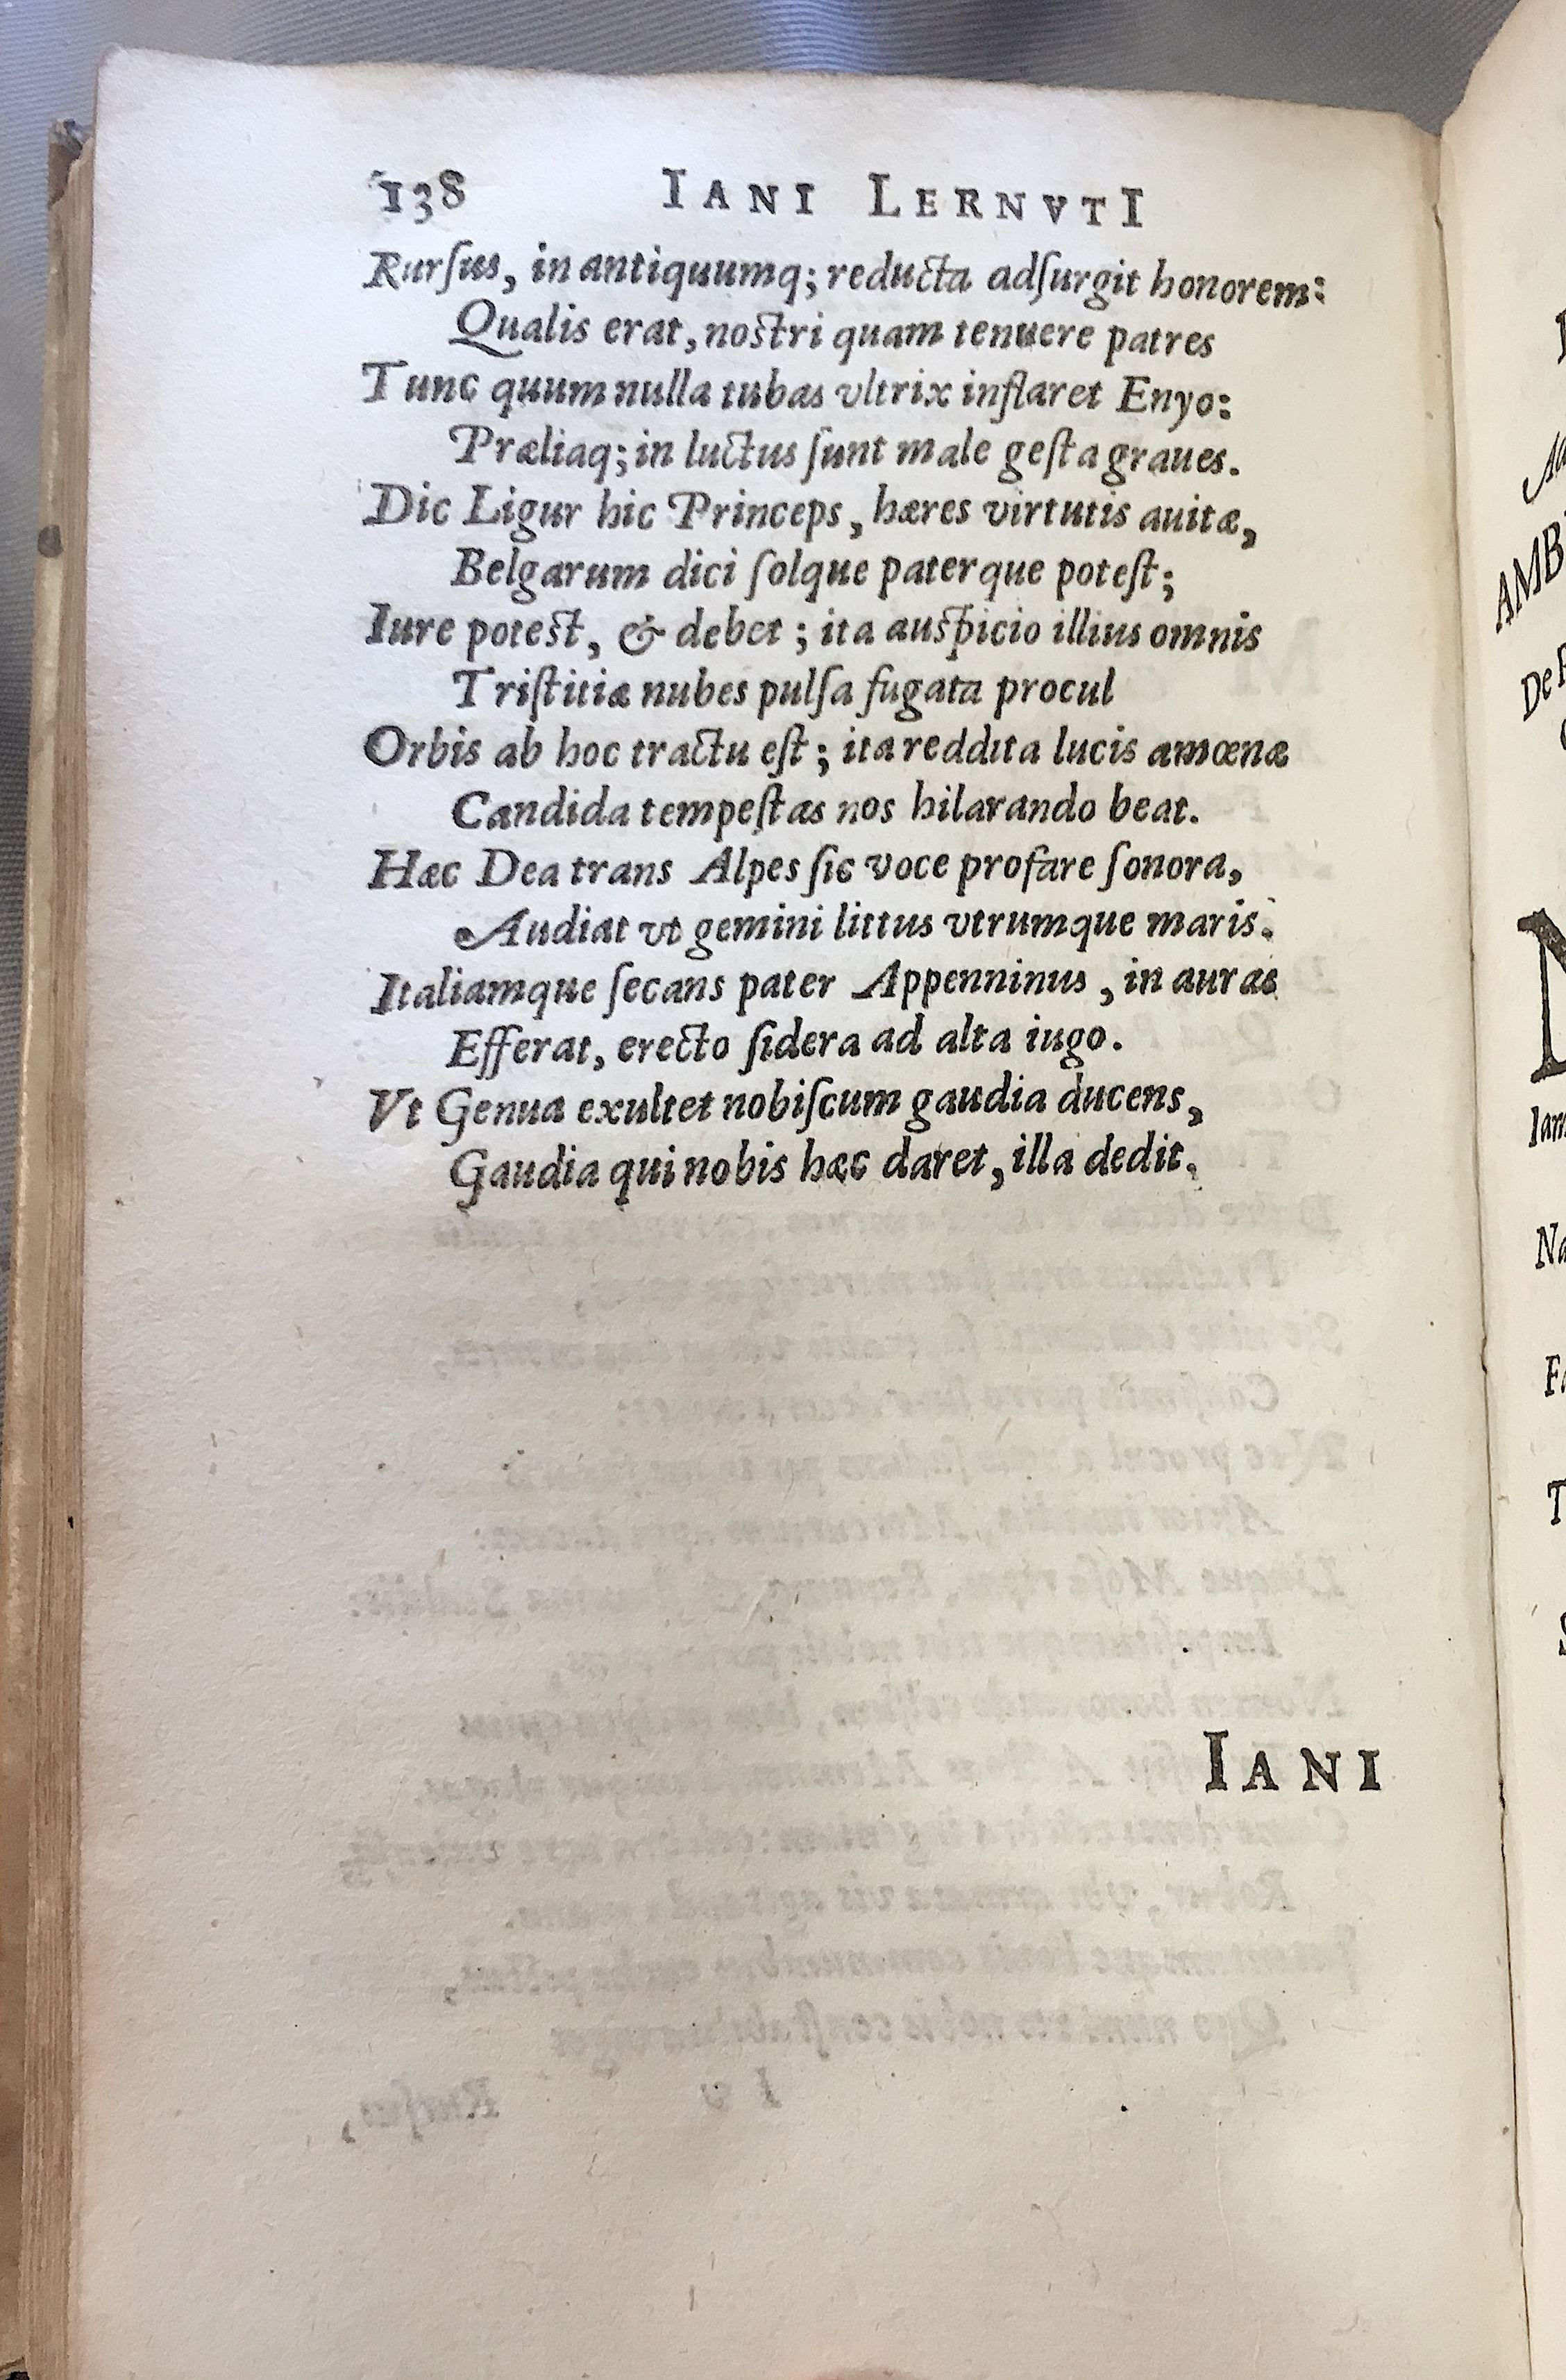 138 IANI LERNVTI
Rursus, in antiquumq; reducta adsurgit honorem:
Qualis erat, nostri quam tenuere patres
Tunc quum nulla tubas vltrix inflaret Enyo:
Præliaq; in luctus sunt male gesta graues.
Dic Ligur hic Princeps, hæres virtutis auitæ,
Belgarum dici solque paterque potest;
Iure potest, & debet; ita auspicio illius omnis
Tristitiæ nubes pulsa fugata procul
Orbis ab hoc tractu est; ita reddita lucis amœnæ
Candida tempestas nos hilarando beat.
Hæc Dea trans Alpes sic voce profare sonora,
Audiat vt gemini littus vtrumque maris.
Italiamque secans pater Appenninus, in auras
Efferat, erecto sidera ad alta iugo.
Vt Genua exultet nobiscum gaudia ducens,
Gaudia qui nobis hæc daret, illa dedit.
IANI
AMB
De
Iam
Na